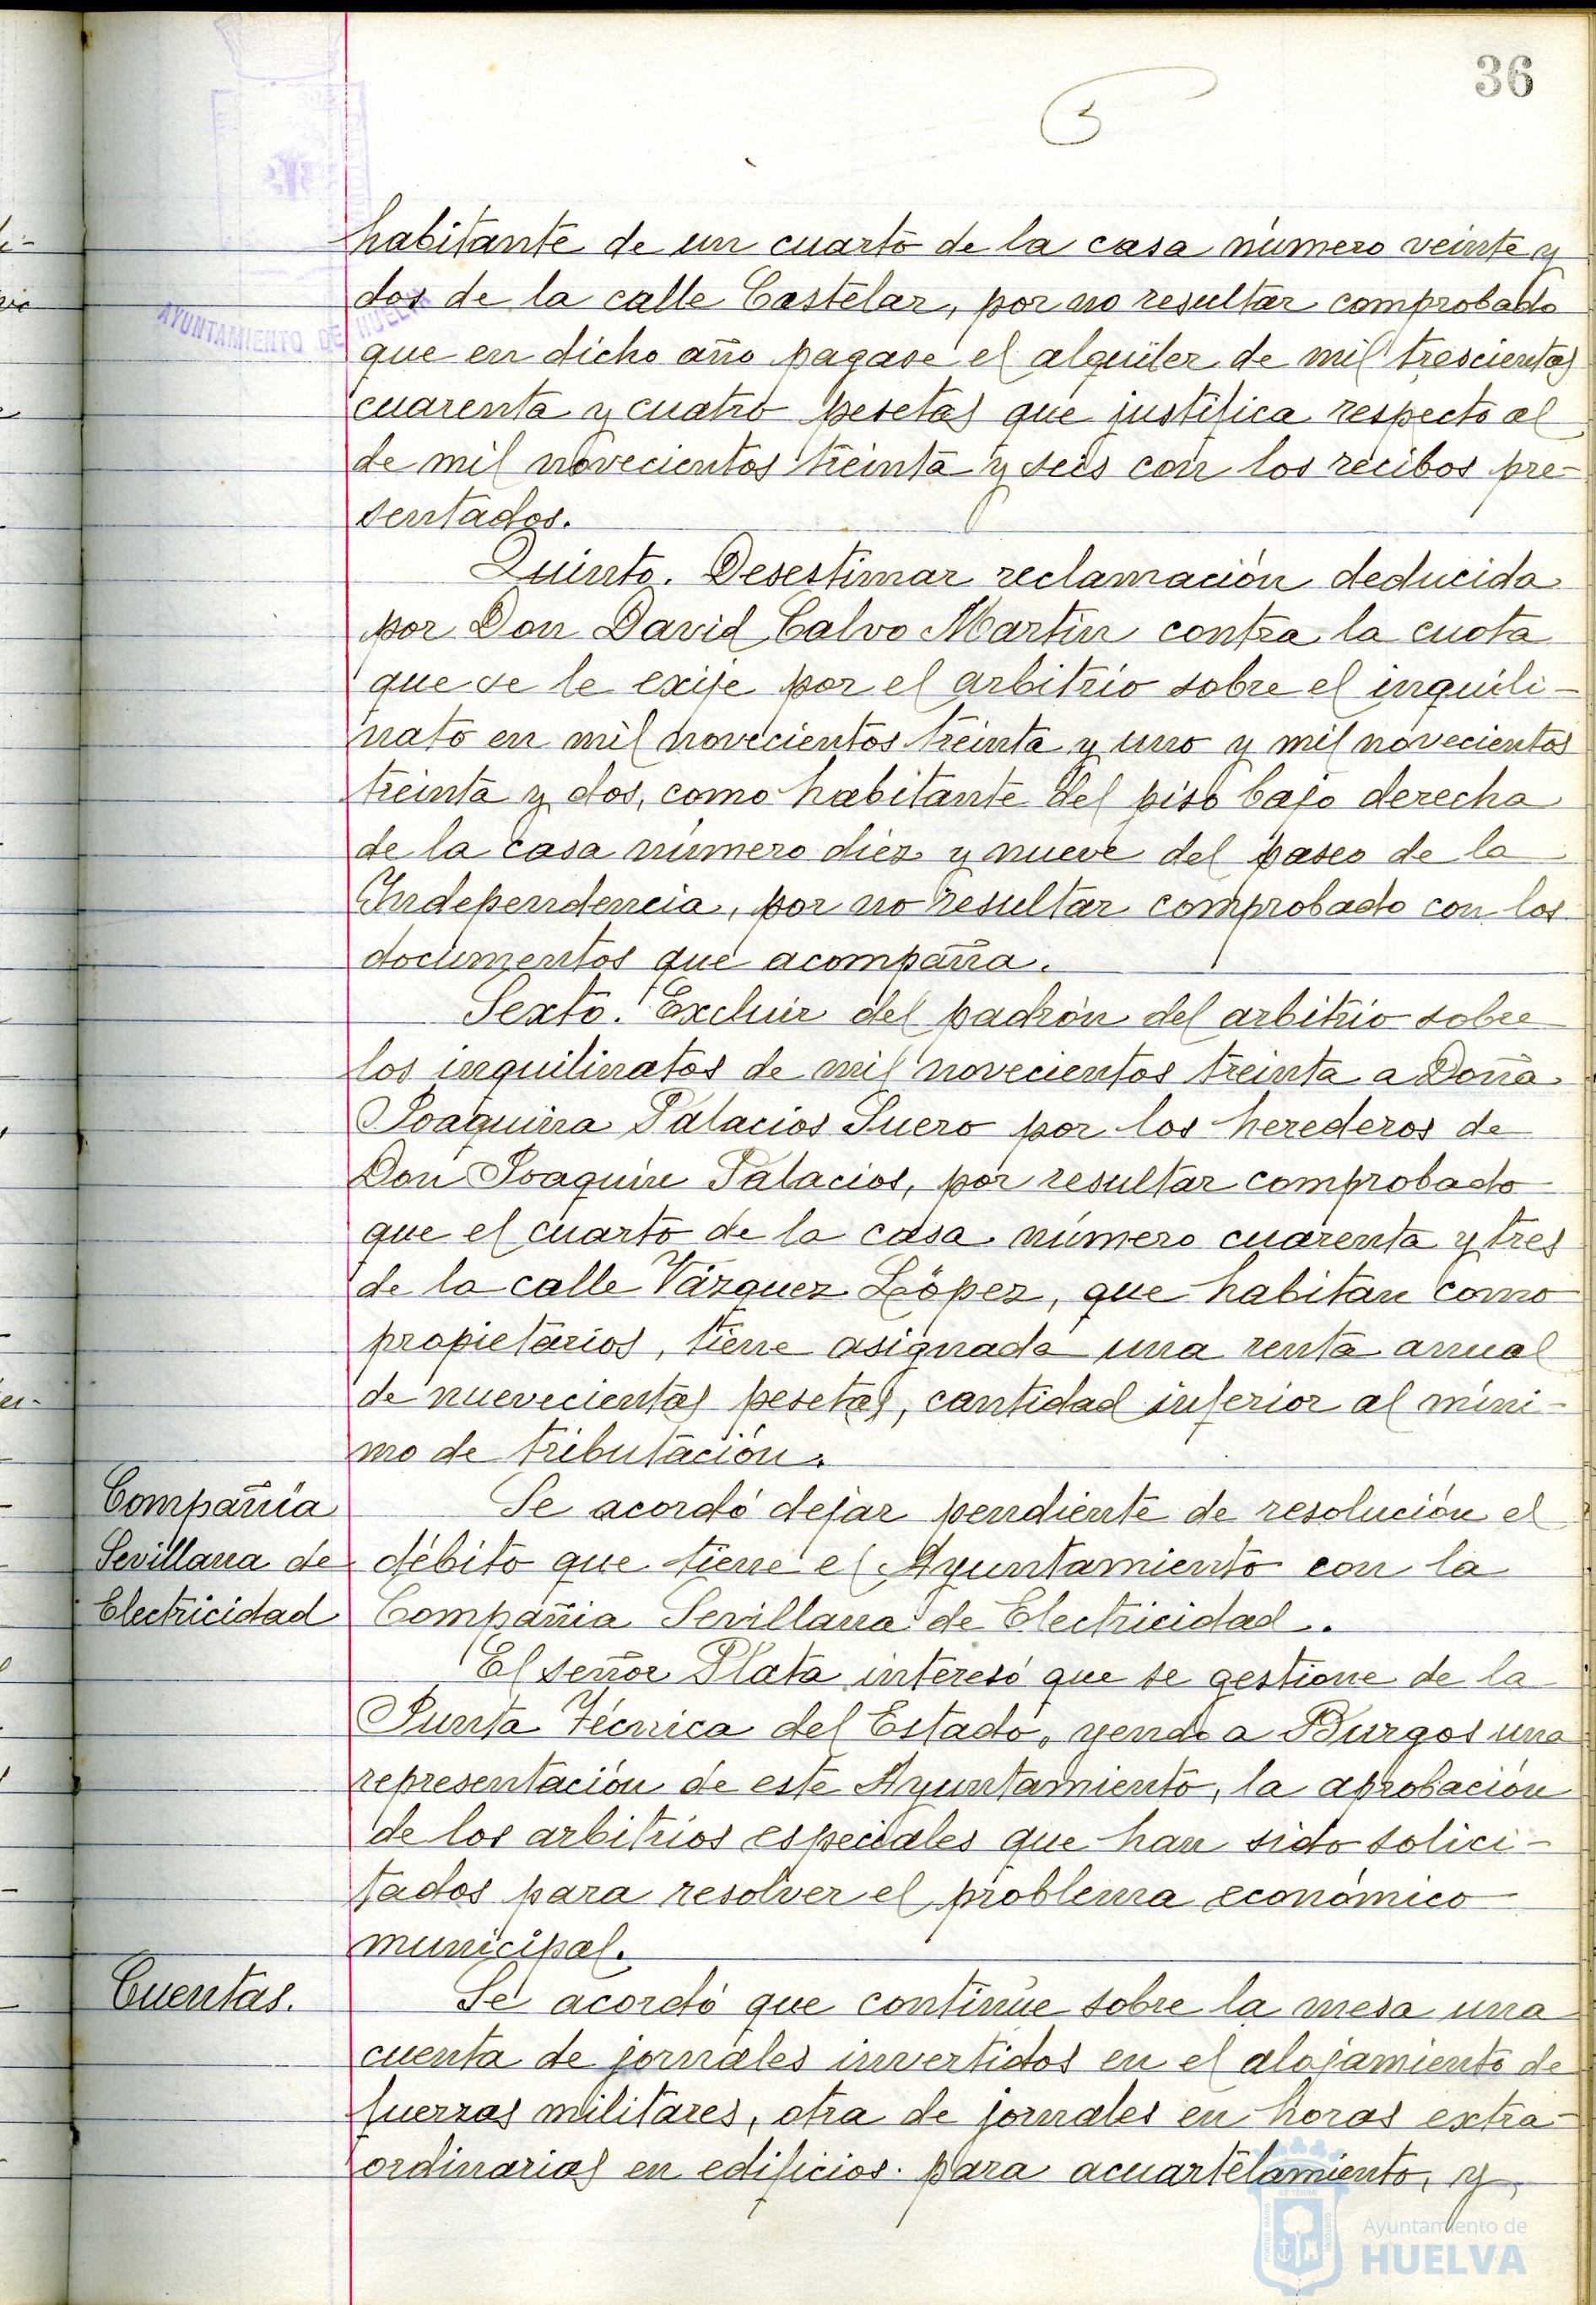 36
habitante de un cuarto de la casa número veinte y
dos de la calle Castelar, por no resultar comprobado
AYUNTAMIENTO DE HUELVA
que en dicho año pagase el alquiler de mil trescientas
cuarenta y cuatro pesetas que justifica respecto al
de mil novecientos treinta y seis con los recibos pre-
sentados.
Quinto. Desestimar reclamación deducida
por Don David Calvo Martin contra la cuota
que se le exije por el arbitrio sobre el inquili-
nato en mil novecientos treinta y uno y mil novecientos
treinta y dos, como habitante del piso bajo derecha
de la casa número diez y nueve del paseo de la
Independencia, por no resultar comprobado con los
documentos que acompaña.
Sexto. Excluir del padrón del arbitrio sobre
los inquilinatos de mil novecientos treinta a Doña
Joaquina Palacios Suero por los herederos de
Don Joaquin Palacios, por resultar comprobado
que el cuarto de la casa número cuarenta y tres
de la calle Vázquez López, que habitan como
propietarios, tiene asignada una renta anual
de nuevecientas pesetas, cantidad inferior al míni-
mo de tributación.
Compañía
Sevillana de
Electricidad
Se acordó dejar pendiente de resolución el
débito que tiene el Ayuntamiento con la
Compañia Sevillana de Electricidad.
El señor Plata interesó que se gestione de la
Junta Técnica del Estado, yendo a Burgos una
representación de este Ayuntamiento, la aprobación
de los arbitrios especiales que han sido solici-
tados para resolver el problema económico
municipal.
Cuentas.
Se acordó que continúe sobre la mesa una
cuenta de jornales invertidos en el alojamiento de
fuerzas militares, otra de jornales en horas extra-
ordinarias en edificios para acuartelamiento, y
Ayuntamiento de
HUELVA